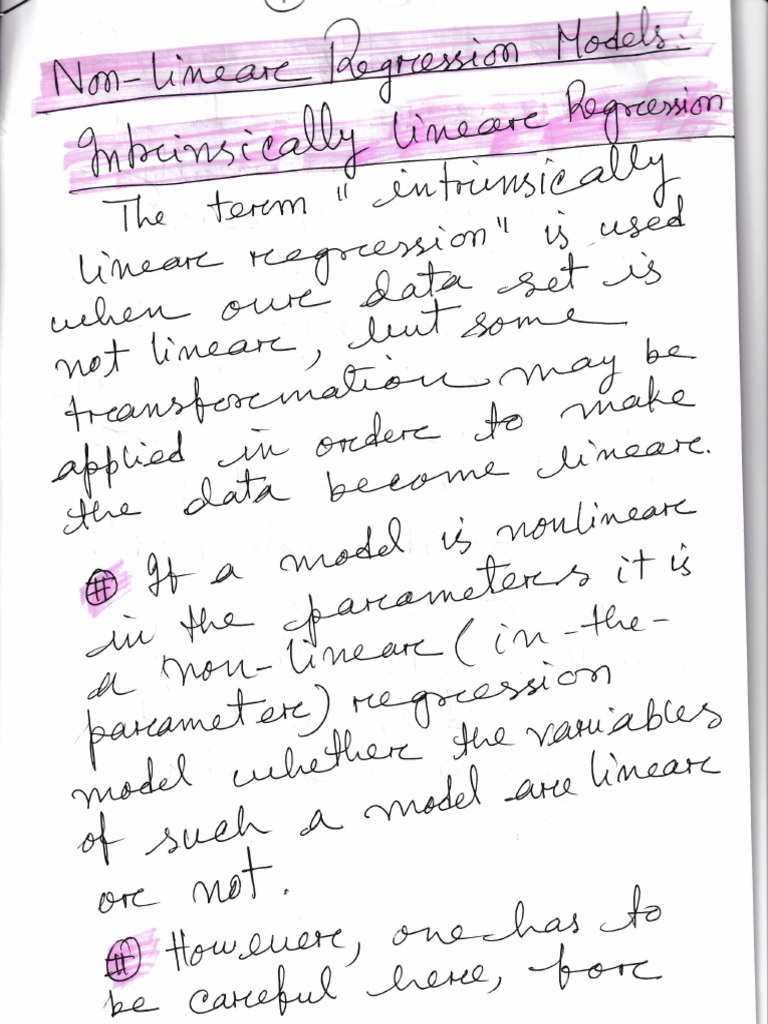 Non-linear Regression Models:
Intrinsically linear Regression
The term "intrinsically
linear regression" is used
when our data set is
not linear, but some
transformation may be
applied in order to make
the data become linear.
# If a model is nonlinear
in the parameters it is
a non-linear (in-the-
parameter) regression
model whether the variables
of such a model are linear
or not.
# However, one has to
be careful here, for